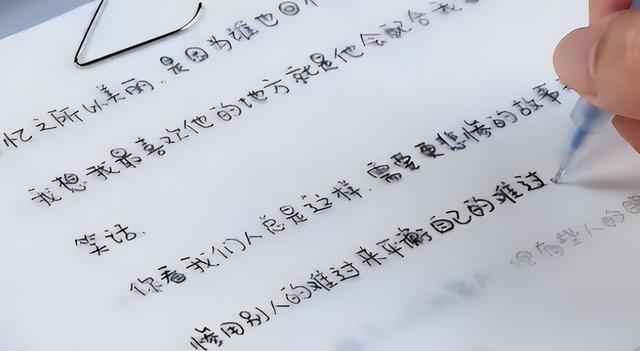 忆之所以美丽.是因为谁也回个
我想我最喜欢他的地方就是他会配合我
笑话.
你看我们人总是这样.需要更悲惨的故事
惨用别人的难过来平衡自己的难过.
但有些人的